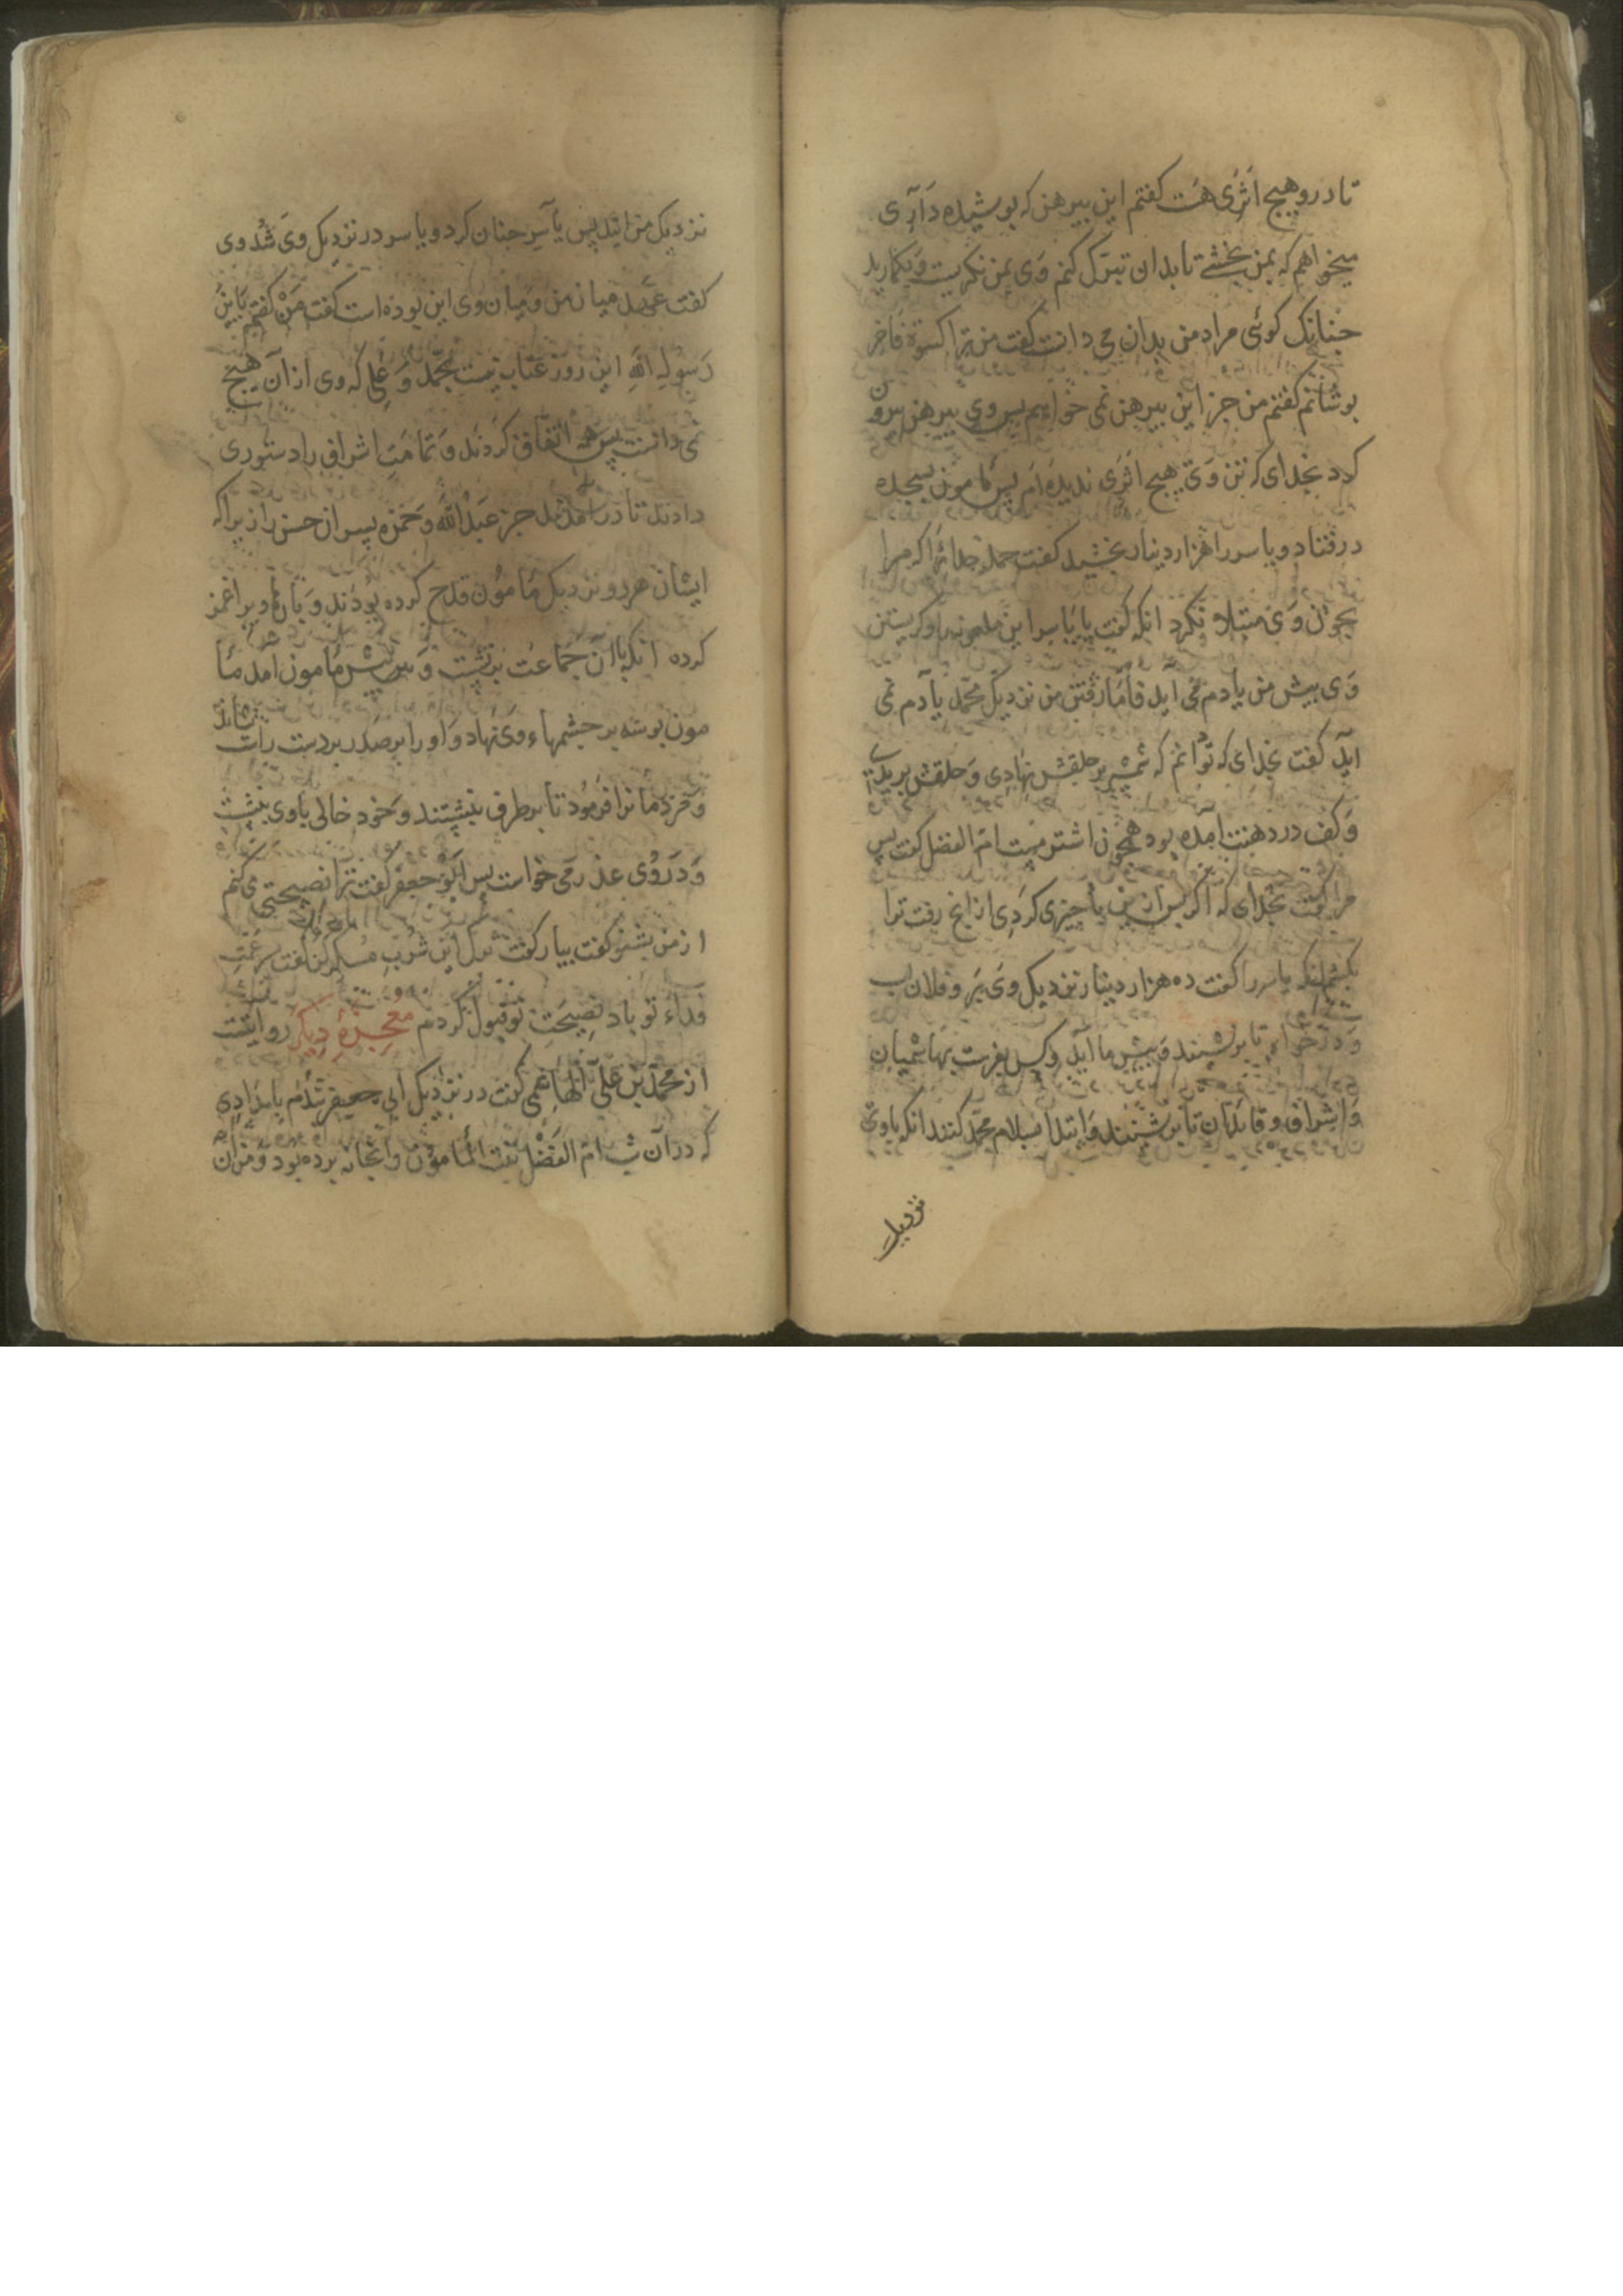 تا درو هیچ اثری هست کفتم این بیرهن که بوشیده داری
میخواهم که بمن بخشی تا بدان تبرک کنم وی بمن نکریست و بکمارید
جنانک کوئی مراد من بدان می دانست کفت من ترا کسوة فاخر
بوشانم کفتم من جز این بیرهن نمی خواهم بس وی بیرهن برون
کرد بخدای که بتن وی هیچ اثری ندیده ام پس مامون بسجده
در فتاد و یاسر را هزار دینار بخشید کفت حمد خدائرا که مرا
بخون وی مبتلا نکرد انکه کفت یا یاسر این ملعونه را و کریستن
وی بیش من یادم می آید فاما رفتن من نزدیک محمد یادم نمی
اید کفت بخدای که تو انم که شمشیر بر حلقش نهادی و حلقش بریدی
و کف در دهنت آمده بود همچون اشتر مست ام الفضل کفت بس
مرا کفت بخدای که اکر بس ازین با جیزی کردی از انج رفت ترا
بکشم انکه یاسر را کفت ده هزار دینار نزدیک وی بر و فلان اسب
و درخواه تا برنشیند و بیش ما آید و کس بفرست بهاشمیان
و اشراف و قایدان تا برنشینند و ابتدا بسلام محمد کنند انکه با وی
نزدیک
نزدیک من ایند پس یاسر جنان کرد و یاسر در نزدیک وی شد وی
کفت عهد میان من و میان وی این بوده است کفت من کفتم یا بن
رسول الله این روز عتاب نیست بحمد و علی که وی از آن هیچ
نمی دانست پس همه اتفاق کردند و تمامت اشراف را دستوری
دادند تا در آمدند جز عبدالله و حمزه پسران حسن را زیراکه
ایشان هر دو نزدیک مامون قدح کرده بودند و بارها ویرا غمز
کرده انکه با آن جماعت برنشست و بیش مامون آمد ما
مون بوسه بر جشمهاء وی نهاد و او را بر صدر بر دست راست بنشاند
و مردمانرا فرمود تا بر طرفی بنشستند و خود خالی با وی بنشست
و در وی عذر می خواست بس ابو جعفر کفت ترا نصیحتی می کنم
از من بشنو کفت بیار کفت ترک این شرب مسکر کن کفت بسر عمت
فداء تو باد نصیحت تو قبول کردم معجزهٔ دیکر روایتست
از محمد بن علی الهاشمی کفت در نزدیک ابی جعفر شدم بامدادی
که در آن شب ام الفضل بنت المأمون را بخانه برده بود و من آن